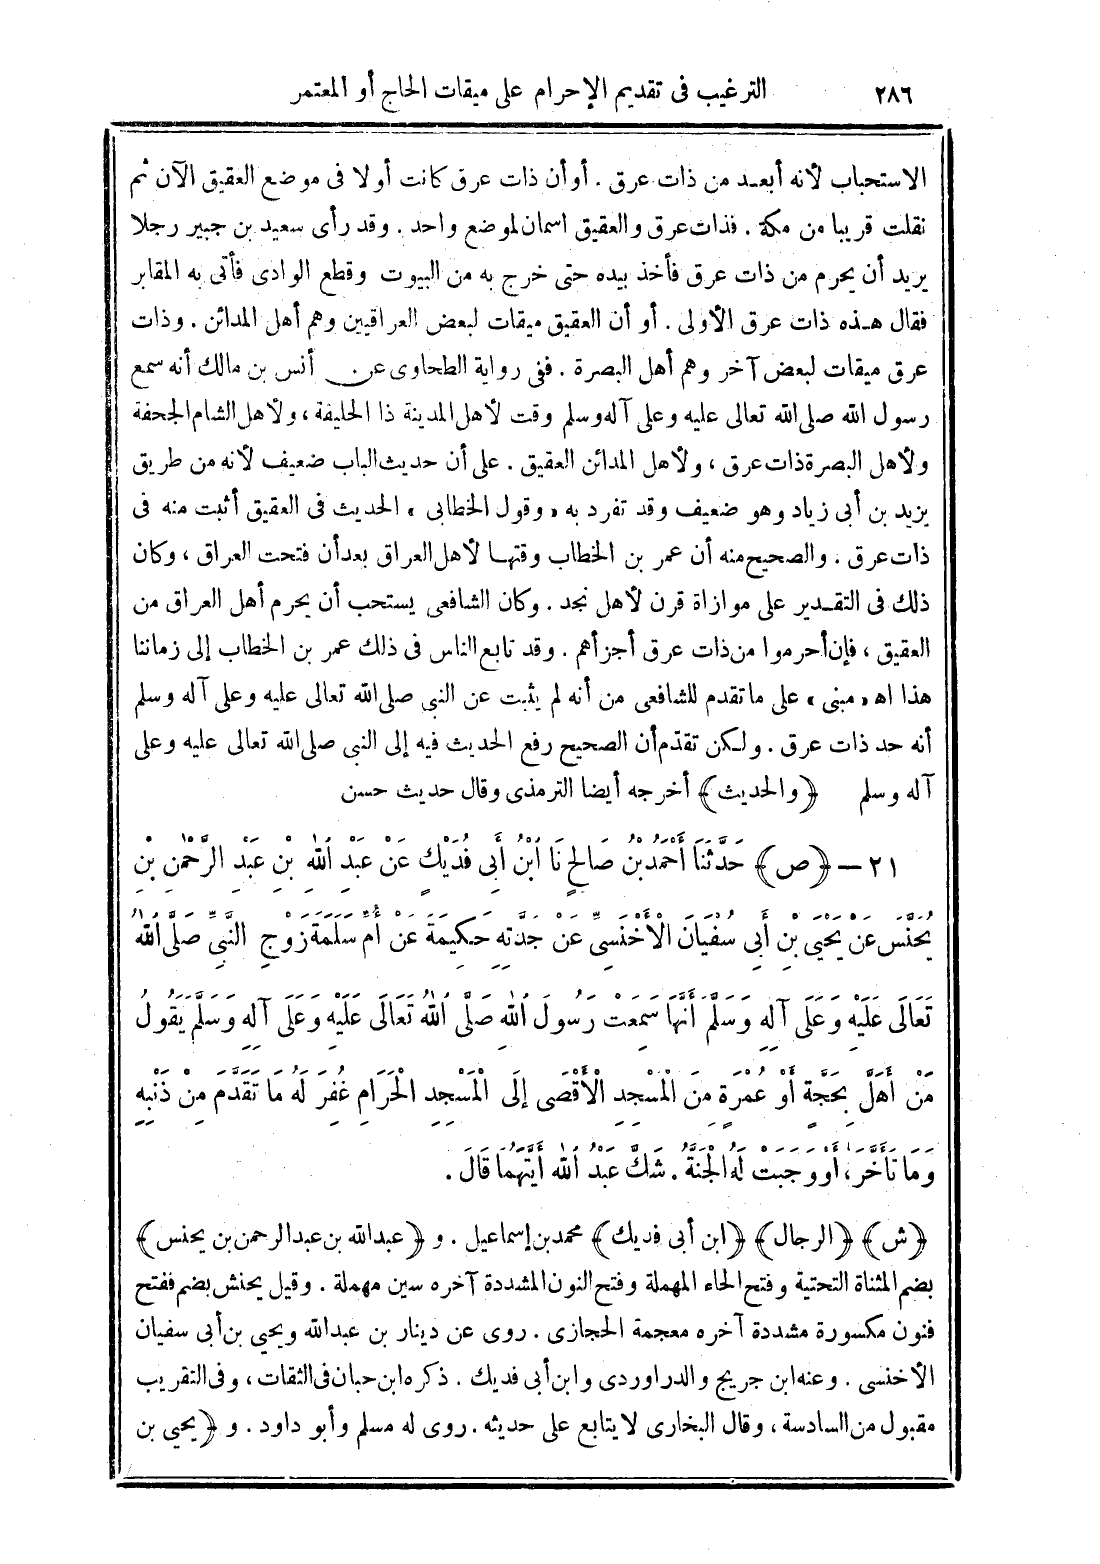 ٢٨٦ الترغيب فى تقديم الإحرام على ميقات الحاج أو المعتمر
الاستحباب لأنه أبعـد من ذات عرق . أو أن ذات عرق كانت أولا فى موضع العقيق الآن ثم
نقلت قريبا من مكة . فذات عرق والعقيق اسمان لموضع واحد . وقد رأى سعيد بن جبير رجلا
يريد أن يحرم من ذات عرق فأخذ بيده حتى خرج به من البيوت وقطع الوادى فأتى به المقابر
فقال هـذه ذات عرق الأولى . أو أن العقيق ميقات لبعض العراقيين وهم أهل المدائن . وذات
عرق ميقات لبعض آخر وهم أهل البصرة . ففى رواية الطحاوى عن أنس بن مالك أنه سمع
رسول الله صلى الله تعالى عليه وعلى آله وسلم وقت لأهل المدينة ذا الحليفة ، ولأهل الشام الجحفة
ولأهل البصرة ذات عرق ، ولأهل المدائن العقيق . على أن حديث الباب ضعيف لأنه من طريق
يزيد بن أبى زياد وهو ضعيف وقد تفرد به «وقول الخطابى» الحديث فى العقيق أثبت منه فى
ذات عرق . والصحيح منه أن عمر بن الخطاب وقتهـا لأهل العراق بعد أن فتحت العراق ، وكان
ذلك فى التقـدير على موازاة قرن لأهل نجد . وكان الشافعى يستحب أن يحرم أهل العراق من
العقيق ، فإن أحرموا من ذات عرق أجزأهم . وقد تابع الناس فى ذلك عمر بن الخطاب إلى زماننا
هذا اه «مبنى» على ما تقدم للشافعى من أنه لم يثبت عن النبى صلى الله تعالى عليه وعلى آله وسلم
أنه حد ذات عرق . ولـكن تقدّم أن الصحيح رفع الحديث فيه إلى النبى صلى الله تعالى عليه وعلى
آله وسلم ﴿والحديث﴾ أخرجه أيضا الترمذى وقال حديث حسن
٢١ - ﴿ص﴾ حَدَّثَنَا أَحْمَدُ بْنُ صَالِحٍ نَا ابْنُ أَبِى فُدَيْكٍ عَنْ عَبْدِ اللهِ بْنِ عَبْدِ الرَّحْمٰنِ بْنِ
يُحَنَّسَ عَنْ يَحْيَى بْنِ أَبِى سُفْيَانَ الْأَخْنَسِىِّ عَنْ جَدَّتِهِ حَكِيمَةَ عَنْ أُمِّ سَلَمَةَ زَوْجِ النَّبِىِّ صَلَّى اللهُ
تَعَالَى عَلَيْهِ وَعَلَى آلِهِ وَسَلَّمَ أَنَّهَا سَمِعَتْ رَسُولَ اللهِ صَلَّى اللهُ تَعَالَى عَلَيْهِ وَعَلَى آلِهِ وَسَلَّمَ يَقُولُ
مَنْ أَهَلَّ بِحَجَّةٍ أَوْ عُمْرَةٍ مِنَ الْمَسْجِدِ الْأَقْصَى إِلَى الْمَسْجِدِ الْحَرَامِ غُفِرَ لَهُ مَا تَقَدَّمَ مِنْ ذَنْبِهِ
وَمَا تَأَخَّرَ، أَوْ وَجَبَتْ لَهُ الْجَنَّةُ . شَكَّ عَبْدُ اللهِ أَيَّتَهُمَا قَالَ .
﴿ش﴾ ﴿الرجال﴾ ﴿ابن أبى فديك﴾ محمد بن إسماعيل . و ﴿عبد الله بن عبد الرحمن بن يحنس﴾
بضم المثناة التحتية وفتح الحاء المهملة وفتح النون المشددة آخره سين مهملة . وقيل يحنش بضم ففتح
فنون مكسورة مشددة آخره معجمة الحجازى . روى عن دينار بن عبد الله ويحيى بن أبى سفيان
الأخنسى . وعنه ابن جريج والدراوردى وابن أبى فديك . ذكره ابن حبان فى الثقات ، وفى التقريب
مقبول من السادسة ، وقال البخارى لا يتابع على حديثه . روى له مسلم وأبو داود . و ﴿يحيى بن